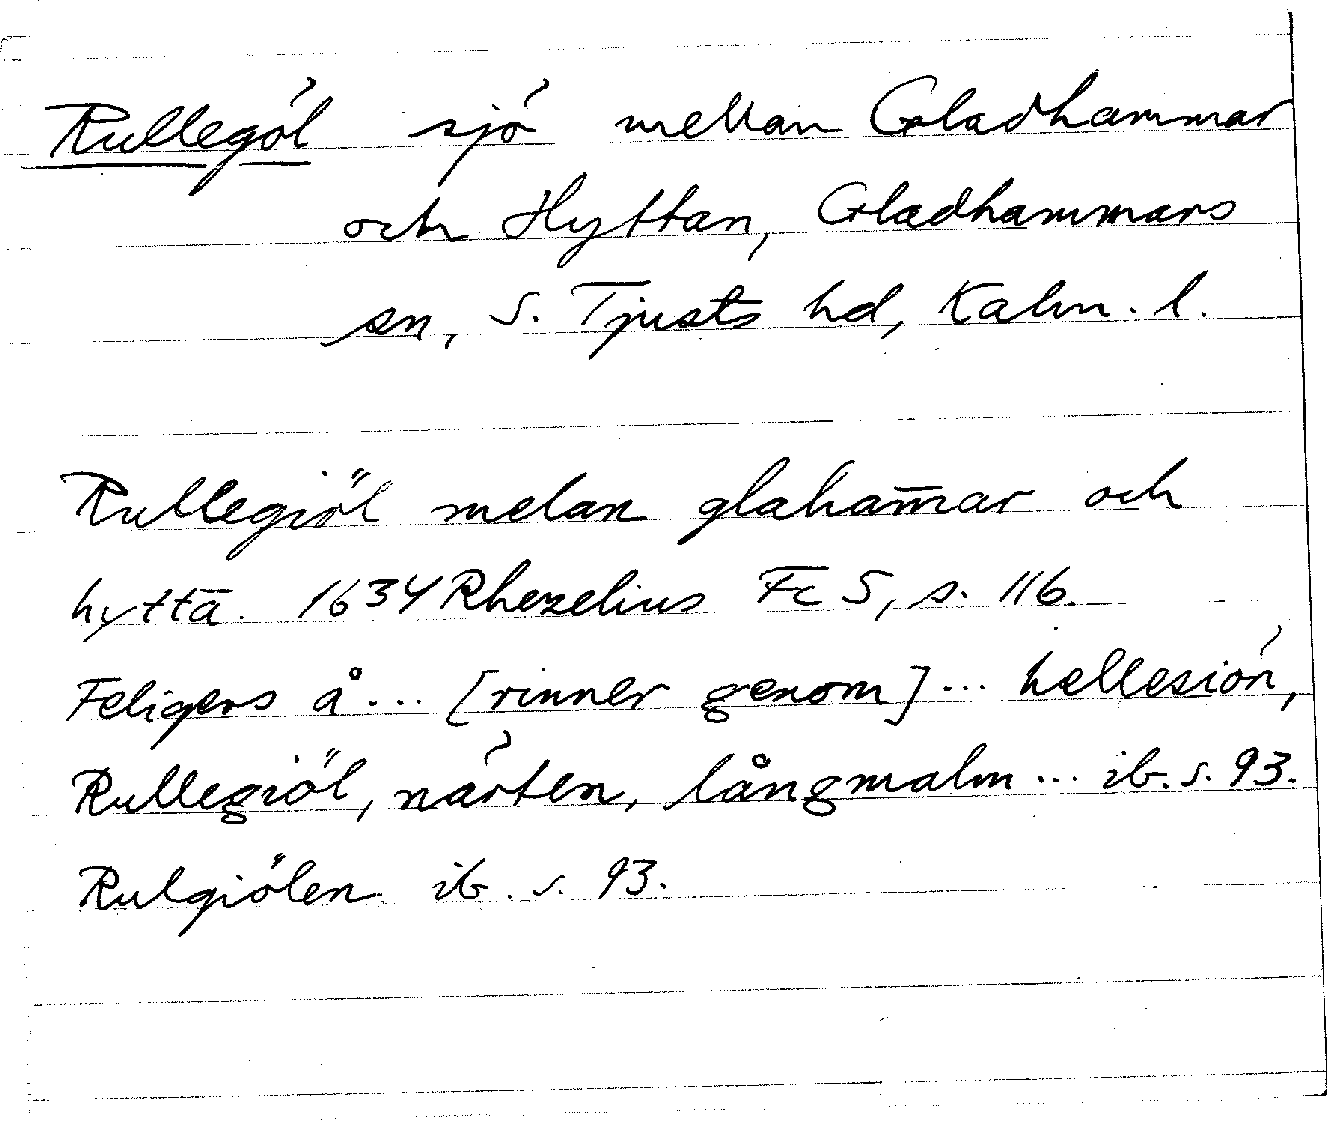 Rullegöl sjö mellan Gladhammar
och Hyttan, Gladhammars
sn, S. Tjusts hd, Kalm. l.
Rullegiöl melan glaham̄ar och
hytta. 1634 Rhezelius Fc 5, s. 116.
Feligers å... [rinner genom]... hellesiön,
Rullegiöl, närten, långmalm... ib. s. 93.
Rulgiölen ib. s. 93.